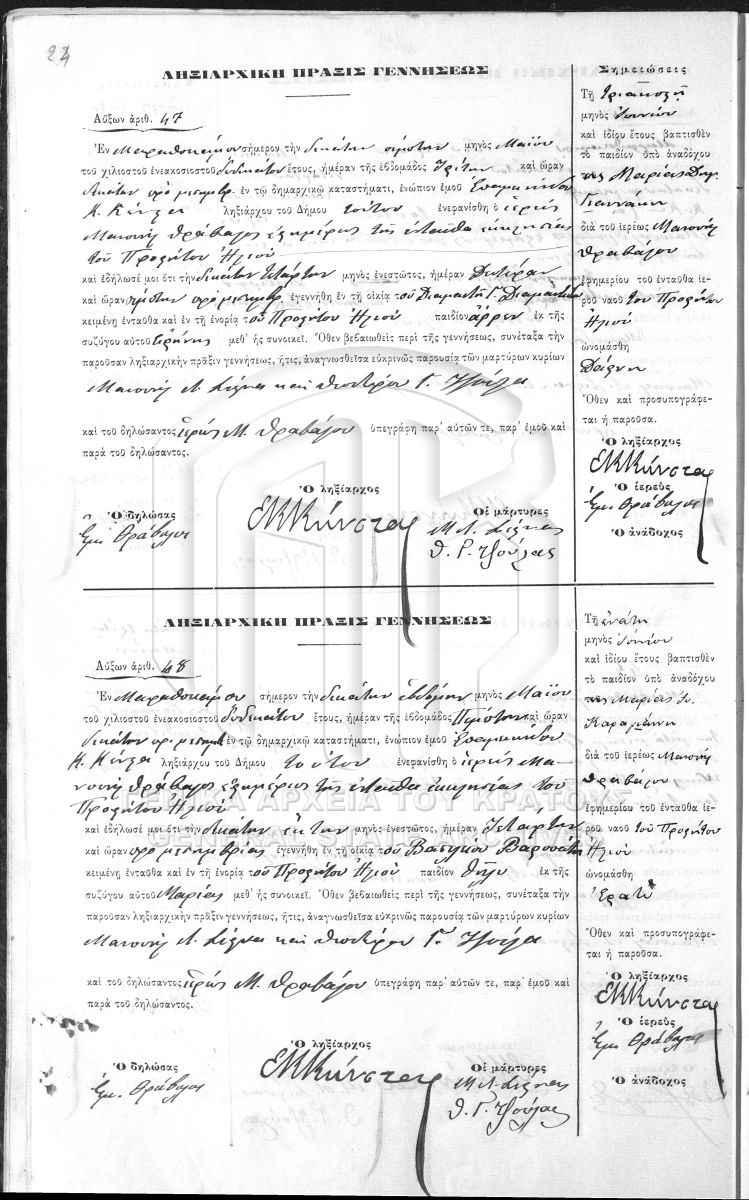 24
ΛΗΞΙΑΡΧΙΚΗ ΠΡΑΞΙΣ ΓΕΝΝΗΣΕΩΣ
Αὔξων ἀριθ. 47
Ἐν σήμερον τὴν δεκάτην πέμπτην μηνὸς Μαΐου
τοῦ χιλιοστοῦ ἐνεακοσιοστοῦ δωδεκάτου ἔτους, ἡμέραν τῆς ἑβδομάδος Τρίτην καὶ ὥραν
δεκάτην πρὸ μεσημβρ. ἐν τῷ δημαρχικῷ καταστήματι, ἐνώπιον ἐμοῦ Ἐπαμεινώνδου
Κ. ληξιάρχου τοῦ Δήμου τούτου ἐνεφανίσθη ὁ ἱερεὺς
Μανουὴλ Θράβαλος ἐφημέριος τῆς ἐνταῦθα ἐκκλησίας
τοῦ Προφήτου Ἠλιού
καὶ ἐδήλωσέ μοι ὅτι τὴν δεκάτην τετάρτην μηνὸς ἐνεστῶτος, ἡμέραν Δευτέραν
καὶ ὥραν πρὸ μεσημβρ. ἐγεννήθη ἐν τῇ οἰκίᾳ τοῦ Διαμαντῆ Γ.
κειμένῃ ἐνταῦθα καὶ ἐν τῇ ἐνορίᾳ τοῦ Προφήτου Ἠλιού παιδίον ἄρρεν ἐκ τῆς
συζύγου αὐτοῦ Εἰρήνης μεθ᾽ ἧς συνοικεῖ. Ὅθεν βεβαιωθεὶς περὶ τῆς γεννήσεως, συνέταξα τὴν
παροῦσαν ληξιαρχικὴν πρᾶξιν γεννήσεως, ἥτις, ἀναγνωσθεῖσα εὐκρινῶς παρουσίᾳ τῶν μαρτύρων κυρίων
Μανουὴλ Λ. καὶ Θεοδώρου Γ. Τζούλα
καὶ τοῦ δηλώσαντος ἱερέως Μ. Θραβάλου ὑπεγράφη παρ᾽ αὐτῶν τε, παρ᾽ ἐμοῦ καὶ
παρὰ τοῦ δηλώσαντος.
Ὁ δηλώσας
Ἐμ. Θράβαλος
Ὁ ληξίαρχος
Οἱ μάρτυρες
Μ. Λ.
Θ. Γ. Τζούλας
Σημειώσεις
Τῇ τριακοστῇ
μηνὸς Ἰουνίου
καὶ ἰδίου ἔτους βαπτισθὲν
τὸ παιδίον ὑπὸ ἀναδόχου
τῆς Μαρίας
Γιαννάκη
διὰ τοῦ ἱερέως Μανουὴλ
Θραβάλου
ἐφημερίου τοῦ ἐνταῦθα ἱε-
ροῦ ναοῦ τοῦ Προφήτου
Ἠλιού
ὠνομάσθη
Ὅθεν καὶ προσυπογράφε-
ται ἡ παροῦσα.
Ὁ ληξίαρχος
Ὁ ἱερεὺς
Ἐμ. Θράβαλος
Ὁ ἀνάδοχος
ΛΗΞΙΑΡΧΙΚΗ ΠΡΑΞΙΣ ΓΕΝΝΗΣΕΩΣ
Αὔξων ἀριθ. 48
Ἐν σήμερον τὴν δεκάτην ἑβδόμην μηνὸς Μαΐου
τοῦ χιλιοστοῦ ἐνεακοσιοστοῦ δωδεκάτου ἔτους, ἡμέραν τῆς ἑβδομάδος Πέμπτην καὶ ὥραν
δεκάτην πρ. μεσημβ. ἐν τῷ δημαρχικῷ καταστήματι, ἐνώπιον ἐμοῦ Ἐπαμεινώνδου
Κ. ληξιάρχου τοῦ Δήμου τούτου ἐνεφανίσθη ὁ ἱερεὺς Μα-
νουὴλ Θράβαλος ἐφημέριος τῆς ἐνταῦθα ἐκκλησίας τοῦ
Προφήτου Ἠλιού
καὶ ἐδήλωσέ μοι ὅτι τὴν δεκάτην ἕκτην μηνὸς ἐνεστῶτος, ἡμέραν Τετάρτην
καὶ ὥραν πρὸ μεσημβρίας ἐγεννήθη ἐν τῇ οἰκίᾳ τοῦ Βασιλείου
κειμένῃ ἐνταῦθα καὶ ἐν τῇ ἐνορίᾳ τοῦ Προφήτου Ἠλιού παιδίον θῆλυ ἐκ τῆς
συζύγου αὐτοῦ Μαρίας μεθ᾽ ἧς συνοικεῖ. Ὅθεν βεβαιωθεὶς περὶ τῆς γεννήσεως, συνέταξα τὴν
παροῦσαν ληξιαρχικὴν πρᾶξιν γεννήσεως, ἥτις, ἀναγνωσθεῖσα εὐκρινῶς παρουσίᾳ τῶν μαρτύρων κυρίων
Μανουὴλ Λ. καὶ Θεοδώρου Γ. Τζούλα
καὶ τοῦ δηλώσαντος ἱερέως Μ. Θραβάλου ὑπεγράφη παρ᾽ αὐτῶν τε, παρ᾽ ἐμοῦ καὶ
παρὰ τοῦ δηλώσαντος.
Ὁ δηλώσας
Ἐμ. Θράβαλος
Ὁ ληξίαρχος
Οἱ μάρτυρες
Μ. Λ.
Θ. Γ. Τζούλας
Τῇ ἐνάτῃ
μηνὸς Ἰουνίου
καὶ ἰδίου ἔτους βαπτισθὲν
τὸ παιδίον ὑπὸ ἀναδόχου
τῆς Μαρίας
Καραγιάννη
διὰ τοῦ ἱερέως Μανουὴλ
Θραβάλου
ἐφημερίου τοῦ ἐνταῦθα ἱε-
ροῦ ναοῦ τοῦ Προφήτου
Ἠλιού
ὠνομάσθη
Ἐρατὼ
Ὅθεν καὶ προσυπογράφε-
ται ἡ παροῦσα.
Ὁ ληξίαρχος
Ὁ ἱερεὺς
Ἐμ. Θράβαλος
Ὁ ἀνάδοχος
ΓΕΝΙΚΑ ΑΡΧΕΙΑ ΤΟΥ ΚΡΑΤΟΥΣ
GENERAL STATE ARCHIVES